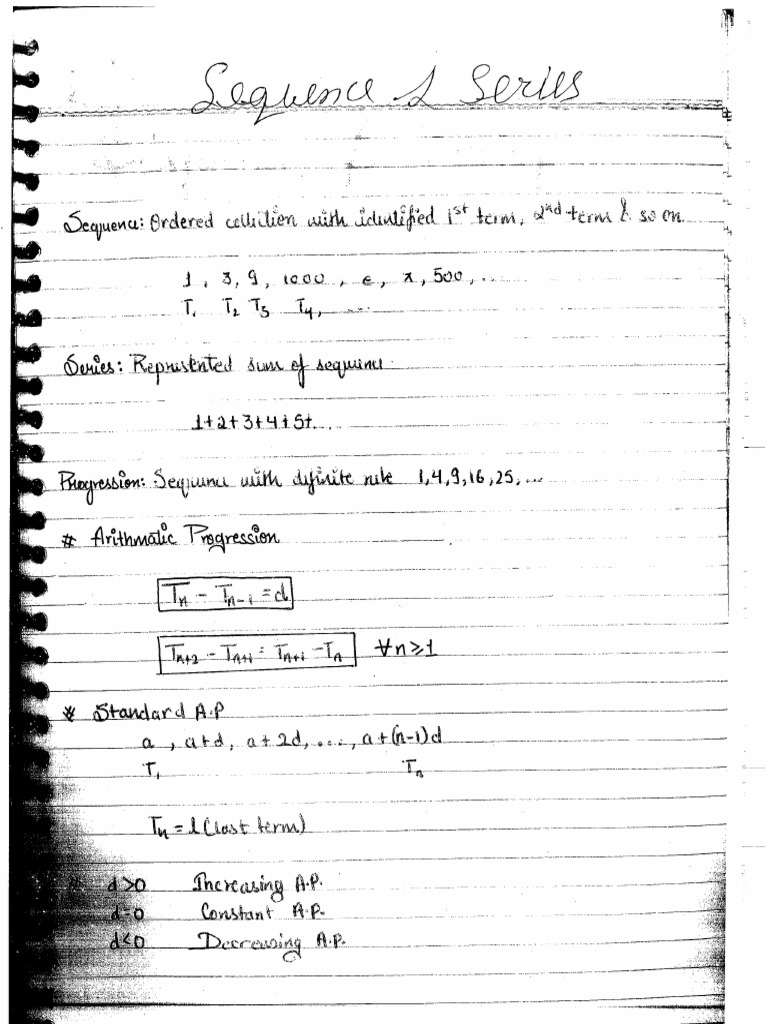 Sequence & Series
Sequence: Ordered collection with identified 1st term, 2nd term & so on
1, 3, 9, 1000, e, x, 500, ...
T₁ T₂ T₃ T₄, ...
Series: Represented sum of sequence.
1+2+3+4+5+...
Progression: Sequence with definite rule 1,4,9,16,25,...
# Arithmatic Progression
Tₙ - Tₙ₋₁ = d
Tₙ₊₂ - Tₙ₊₁ = Tₙ₊₁ - Tₙ ∀n≥1
* Standard A.P
a, a+d, a+2d, ..., a+(n-1)d
T₁ Tₙ
Tₙ = l (last term)
# d>0 Increasing A.P.
d=0 Constant A.P.
d<0 Decreasing A.P.